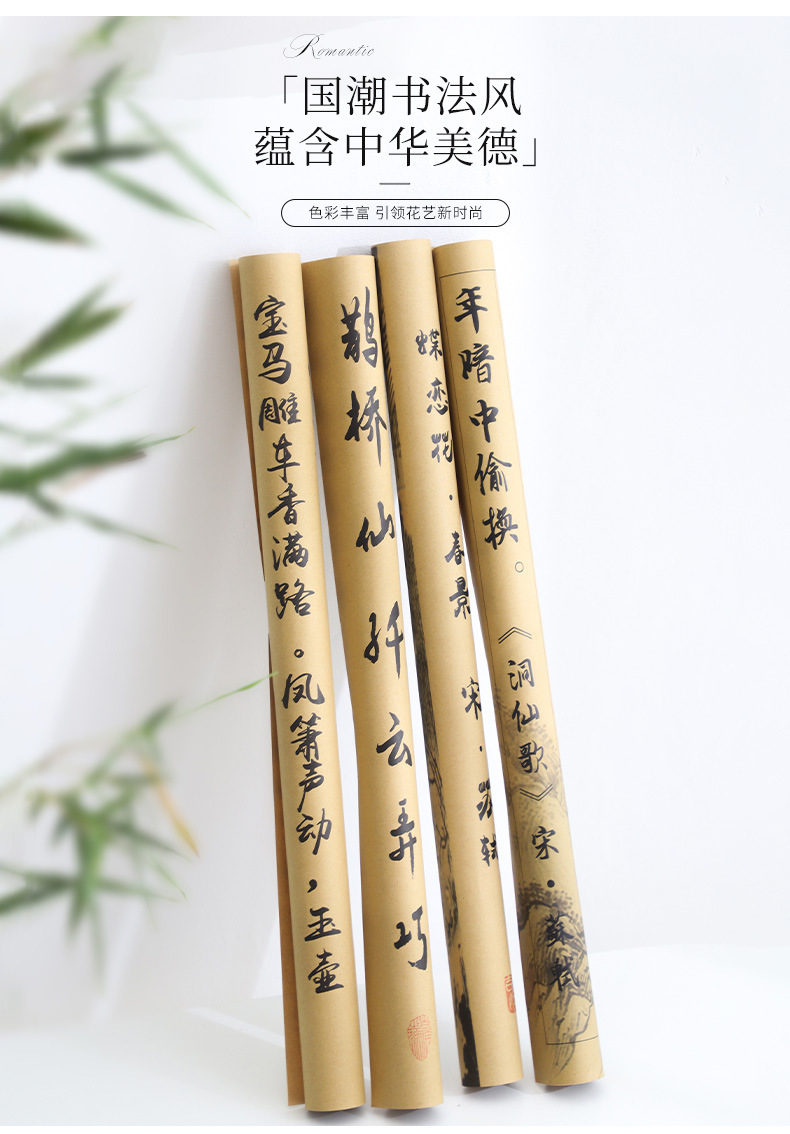 Romantic
「国潮书法风
蕴含中华美德」
色彩丰富 引领花艺新时尚
宝马雕车香满路。凤箫声动，玉壶
鹊桥仙 纤云弄巧
蝶恋花·春景 宋·苏轼
年暗中偷换。《洞仙歌》宋·蘇軾